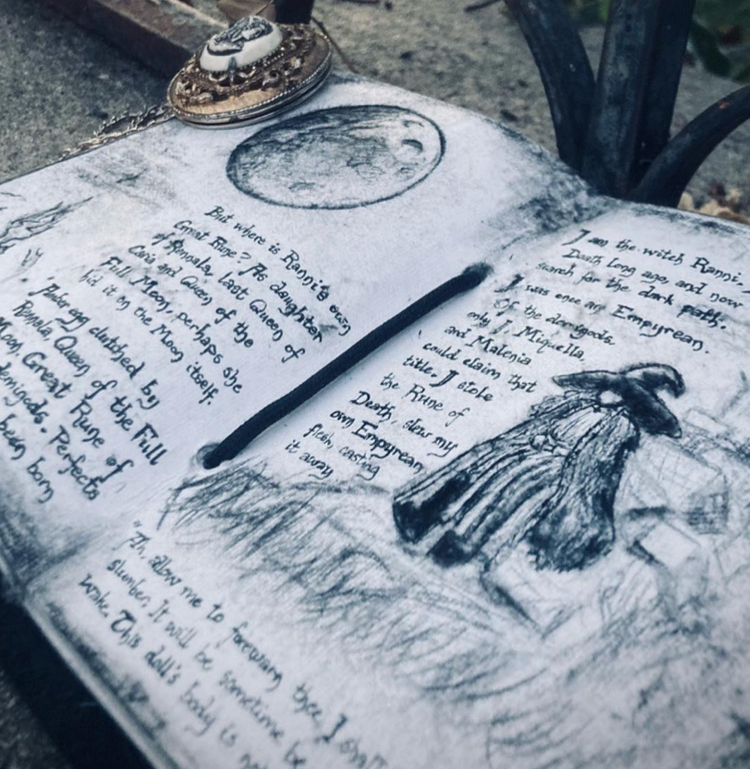 But where is Ranni's own
Great Rune? As daughter
of Rennala, last Queen of
Caria and Queen of the
Full Moon, perhaps she
hid it on the Moon itself.
clutched by
Rennala, Queen of the Full
Moon. Great Rune of
demigods. Perfects
been born
I am the witch Ranni.
Death long ago, and now
search for the dark path.
I was once an Empyrean.
Of the demigods,
only I, Miquella,
and Malenia
could claim that
title. I stole
the Rune of
Death, slew my
own Empyrean
flesh, casting
it away
allow me to forewarn thee, I shall
slumber. It will be sometime be
wake. This doll's body is